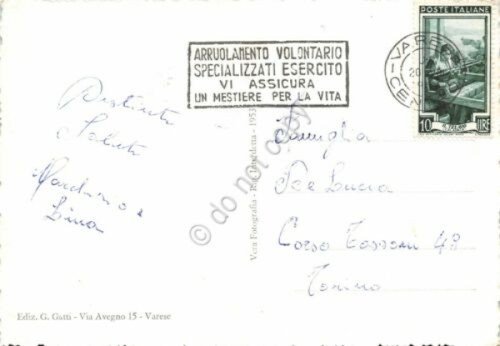 POSTE ITALIANE
ARRUOLAMENTO VOLONTARIO
SPECIALIZZATI ESERCITO
VI ASSICURA
UN MESTIERE PER LA VITA
10 LIRE
Distinti
Saluti
Lina
Vera Fotografia - Rip. Interdetta - 195
Famiglia
Lucia
Corso Tassoni 48
Torino
Ediz. G. Gatti - Via Avegno 15 - Varese
do not copy